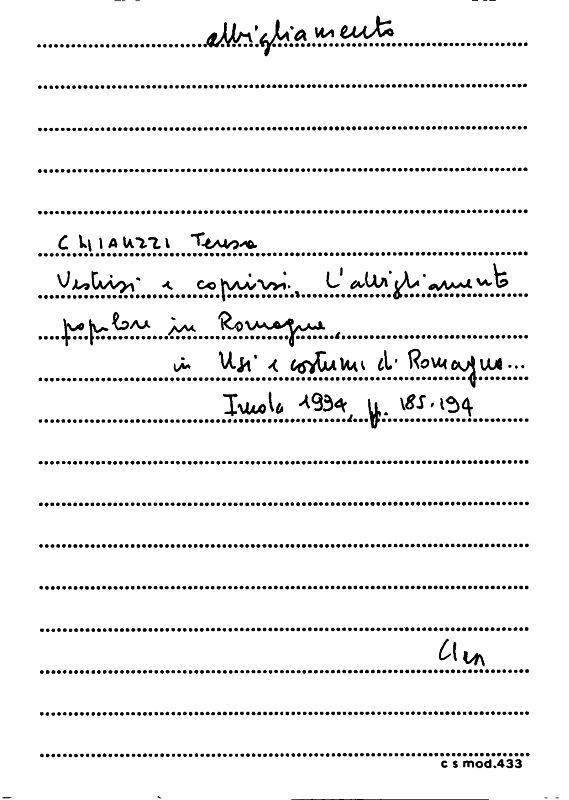 abbigliamento
CHIAUZZI Teresa
Vestirsi e coprirsi. L'abbigliamento
popolare in Romagna,
in Usi e costumi di Romagna...
Imola 1994, pp. 185-194
c s mod.433